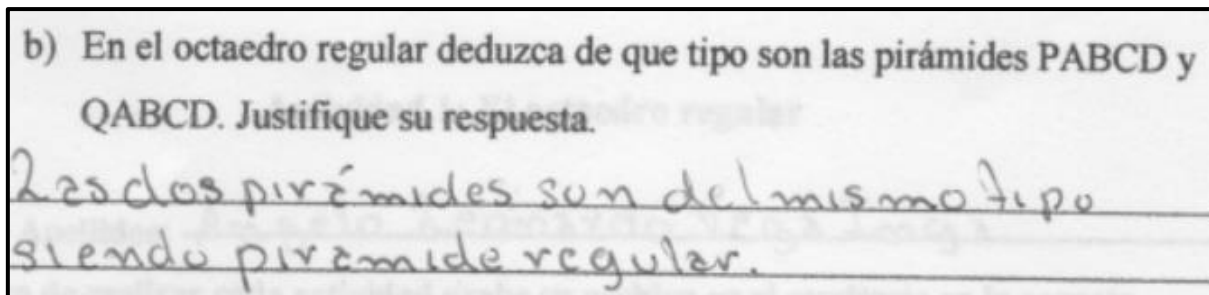 b) En el octaedro regular deduzca de que tipo son las pirámides PABCD y
QABCD. Justifique su respuesta.
Las dos pirámides son del mismo tipo
siendo piramide regular.